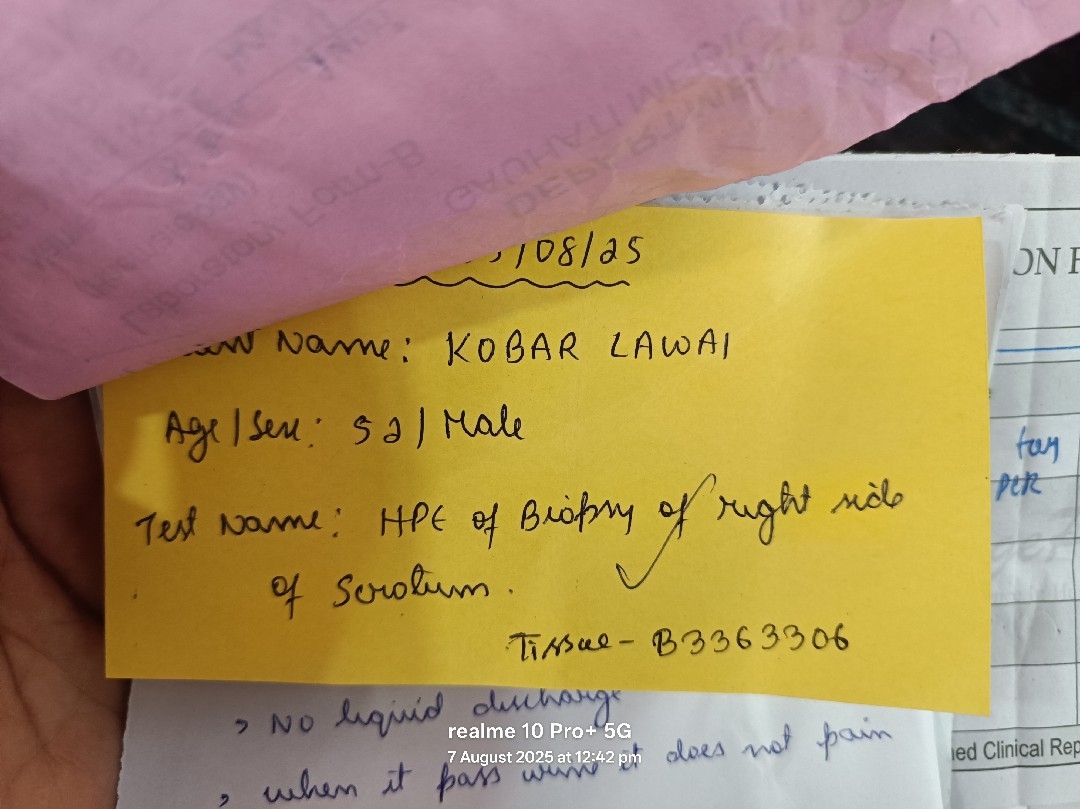 Laboratory Form-B
GAUHATI MEDIC
DEPARTME
/08/25
Name: KOBAR LAWAI
Age/Sex: 52/Male
Test Name: HPE of Biopsy of right side
of Scrotum.
Tissue- B3363306
, NO liquid discharge
, when it pass urine it does not pain
ON F
tay
PCR
ed Clinical Rep
realme 10 Pro+ 5G
7 August 2025 at 12:42 pm